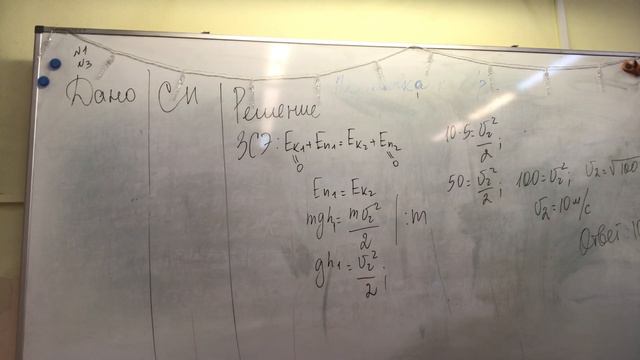 N1
N3
Дано
СИ
Решение
ЗСЭ: Eк₁+Eп₁=Eк₂+Eп₂
0 0
Eп₁=Eк₂
mgh₁=mv₂²/2 | :m
gh₁=v₂²/2;
10·5=v₂²/2;
50=v₂²/2; 100=v₂²; v₂=√100
v₂=10м/с
Ответ: 1